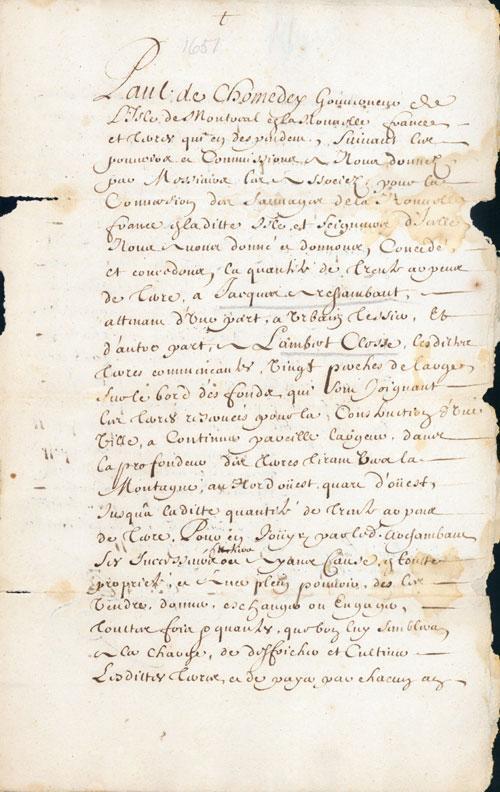 t
1651
Paul de Chomedey Gouuerneur de
L'Isle de Montreal & la Nouuelle france
et terres qui en despendent, Suiuant les
pouuoirs et Commissions a Nous donnez
par Messieurs les Associez pour la
Conuersion des Sauuages de la Nouuelle
france & ladite Isle, et Seigneurs d'Icelle
Nous auons donné et donnons, Concedé
et concedons, la quantité de trente arpens
de terre, a Jacques Archambaut,
attenans d'Vne part, a Vrbain Tessier, Et
d'autre part, a Lambert Closse, lesdittes
terres commenceants, Vingt perches de large
sur le bord des fonds, qui sont Joignant
les terres reseruées pour la Construction d'Vne
Ville, a Continuer pareille largeur, dans
la profondeur des terres tirant Vers la
Montagne, au Nordoüest, quart d'oüest,
Jusqu'a ladite quantité de trente arpens
de terre, Pour en Joüyr par led. Archambaut
Ses Successeurs
ayans Cause, & toutte
proprieté, et Auec plein pouuoir, des les
Vendre, donner, eschanger ou Engager,
touttes fois & quantes, que bon luy semblera
a la Charge, de deffricher et Cultiuer
Lesdittes terres, et de payer par chacun an